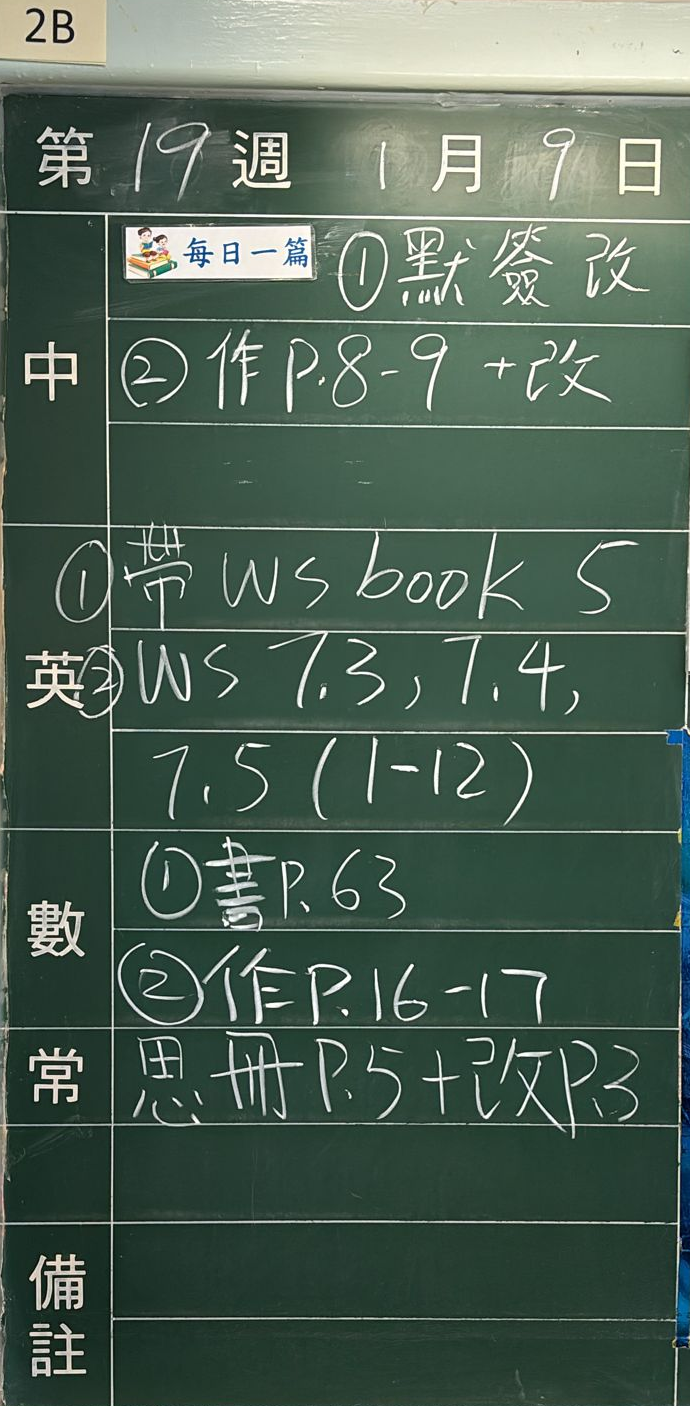 2B
第 19 週 1 月 9 日
中
每日一篇 ①默簽改
②作P.8-9 +改
英
①帶 WS book 5
②WS 7.3, 7.4,
7.5 (1-12)
數
①書P.63
②作P.16-17
常 思冊P.5+改P.3
備註